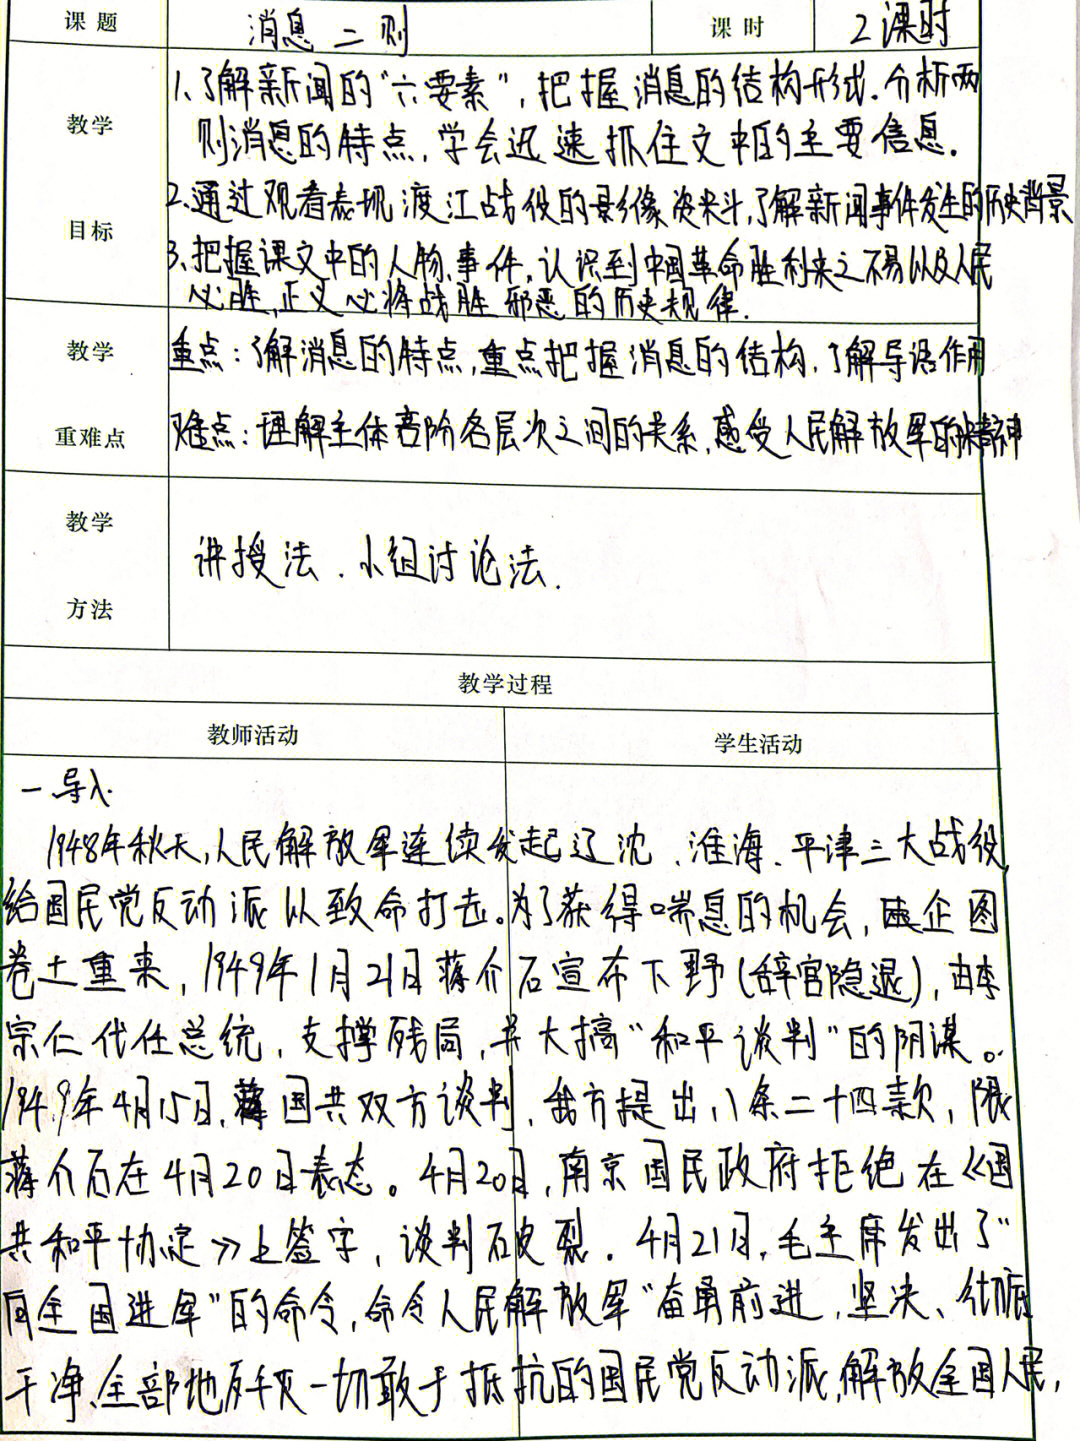 课题 消息二则 课时 2课时
教学目标
1.了解新闻的“六要素”,把握消息的结构形式.分析两
则消息的特点,学会迅速抓住文中的主要信息.
2.通过观看表现渡江战役的影像资料,了解新闻事件发生的历史背景
3.把握课文中的人物、事件,认识到中国革命胜利来之不易以及人民
必胜,正义必将战胜邪恶的历史规律.
教学重难点
重点:了解消息的特点,重点把握消息的结构,了解导语作用
难点:理解主体各层次之间的关系,感受人民解放军的精神
教学方法
讲授法、小组讨论法.
教学过程
教师活动 学生活动
一.导入.
1948年秋天,人民解放军连续发起辽沈、淮海、平津三大战役,
给国民党反动派以致命打击。为了获得喘息的机会,企图
卷土重来,1949年1月21日蒋介石宣布下野(辞官隐退),由李
宗仁代任总统,支撑残局,并大搞“和平谈判”的阴谋。
1949年4月15日,国共双方谈判,我方提出八条二十四款,限
蒋介石在4月20日表态。4月20日,南京国民政府拒绝在《国
共和平协定》上签字,谈判破裂.4月21日,毛主席发出了“
向全国进军”的命令,命令人民解放军“奋勇前进,坚决、彻底
干净、全部地歼灭一切敢于抵抗的国民党反动派,解放全国人民,